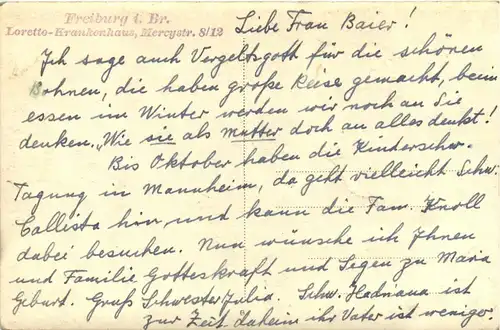 Freiburg i. Br.
Loretto-Krankenhaus, Mercystr. 8/12
Liebe Frau Baier!
Ich sage auch Vergeltsgott für die schönen
Bohnen, die haben große Reise gemacht, beim
essen im Winter werden wir noch an Sie
denken. „Wie sie als Mutter doch an alles denkt!
Bis Oktober haben die Kinderschw.
Tagung in Mannheim, da geht vielleicht Schw.
Callista hin, und kann die Fam. Knoll
dabei besuchen. Nun wünsche ich Ihnen
und Familie Gotteskraft und Segen zu Maria
Geburt. Gruß Schwester Julia. Schw. Hadriana ist
zur Zeit daheim ihr Vater ist weniger